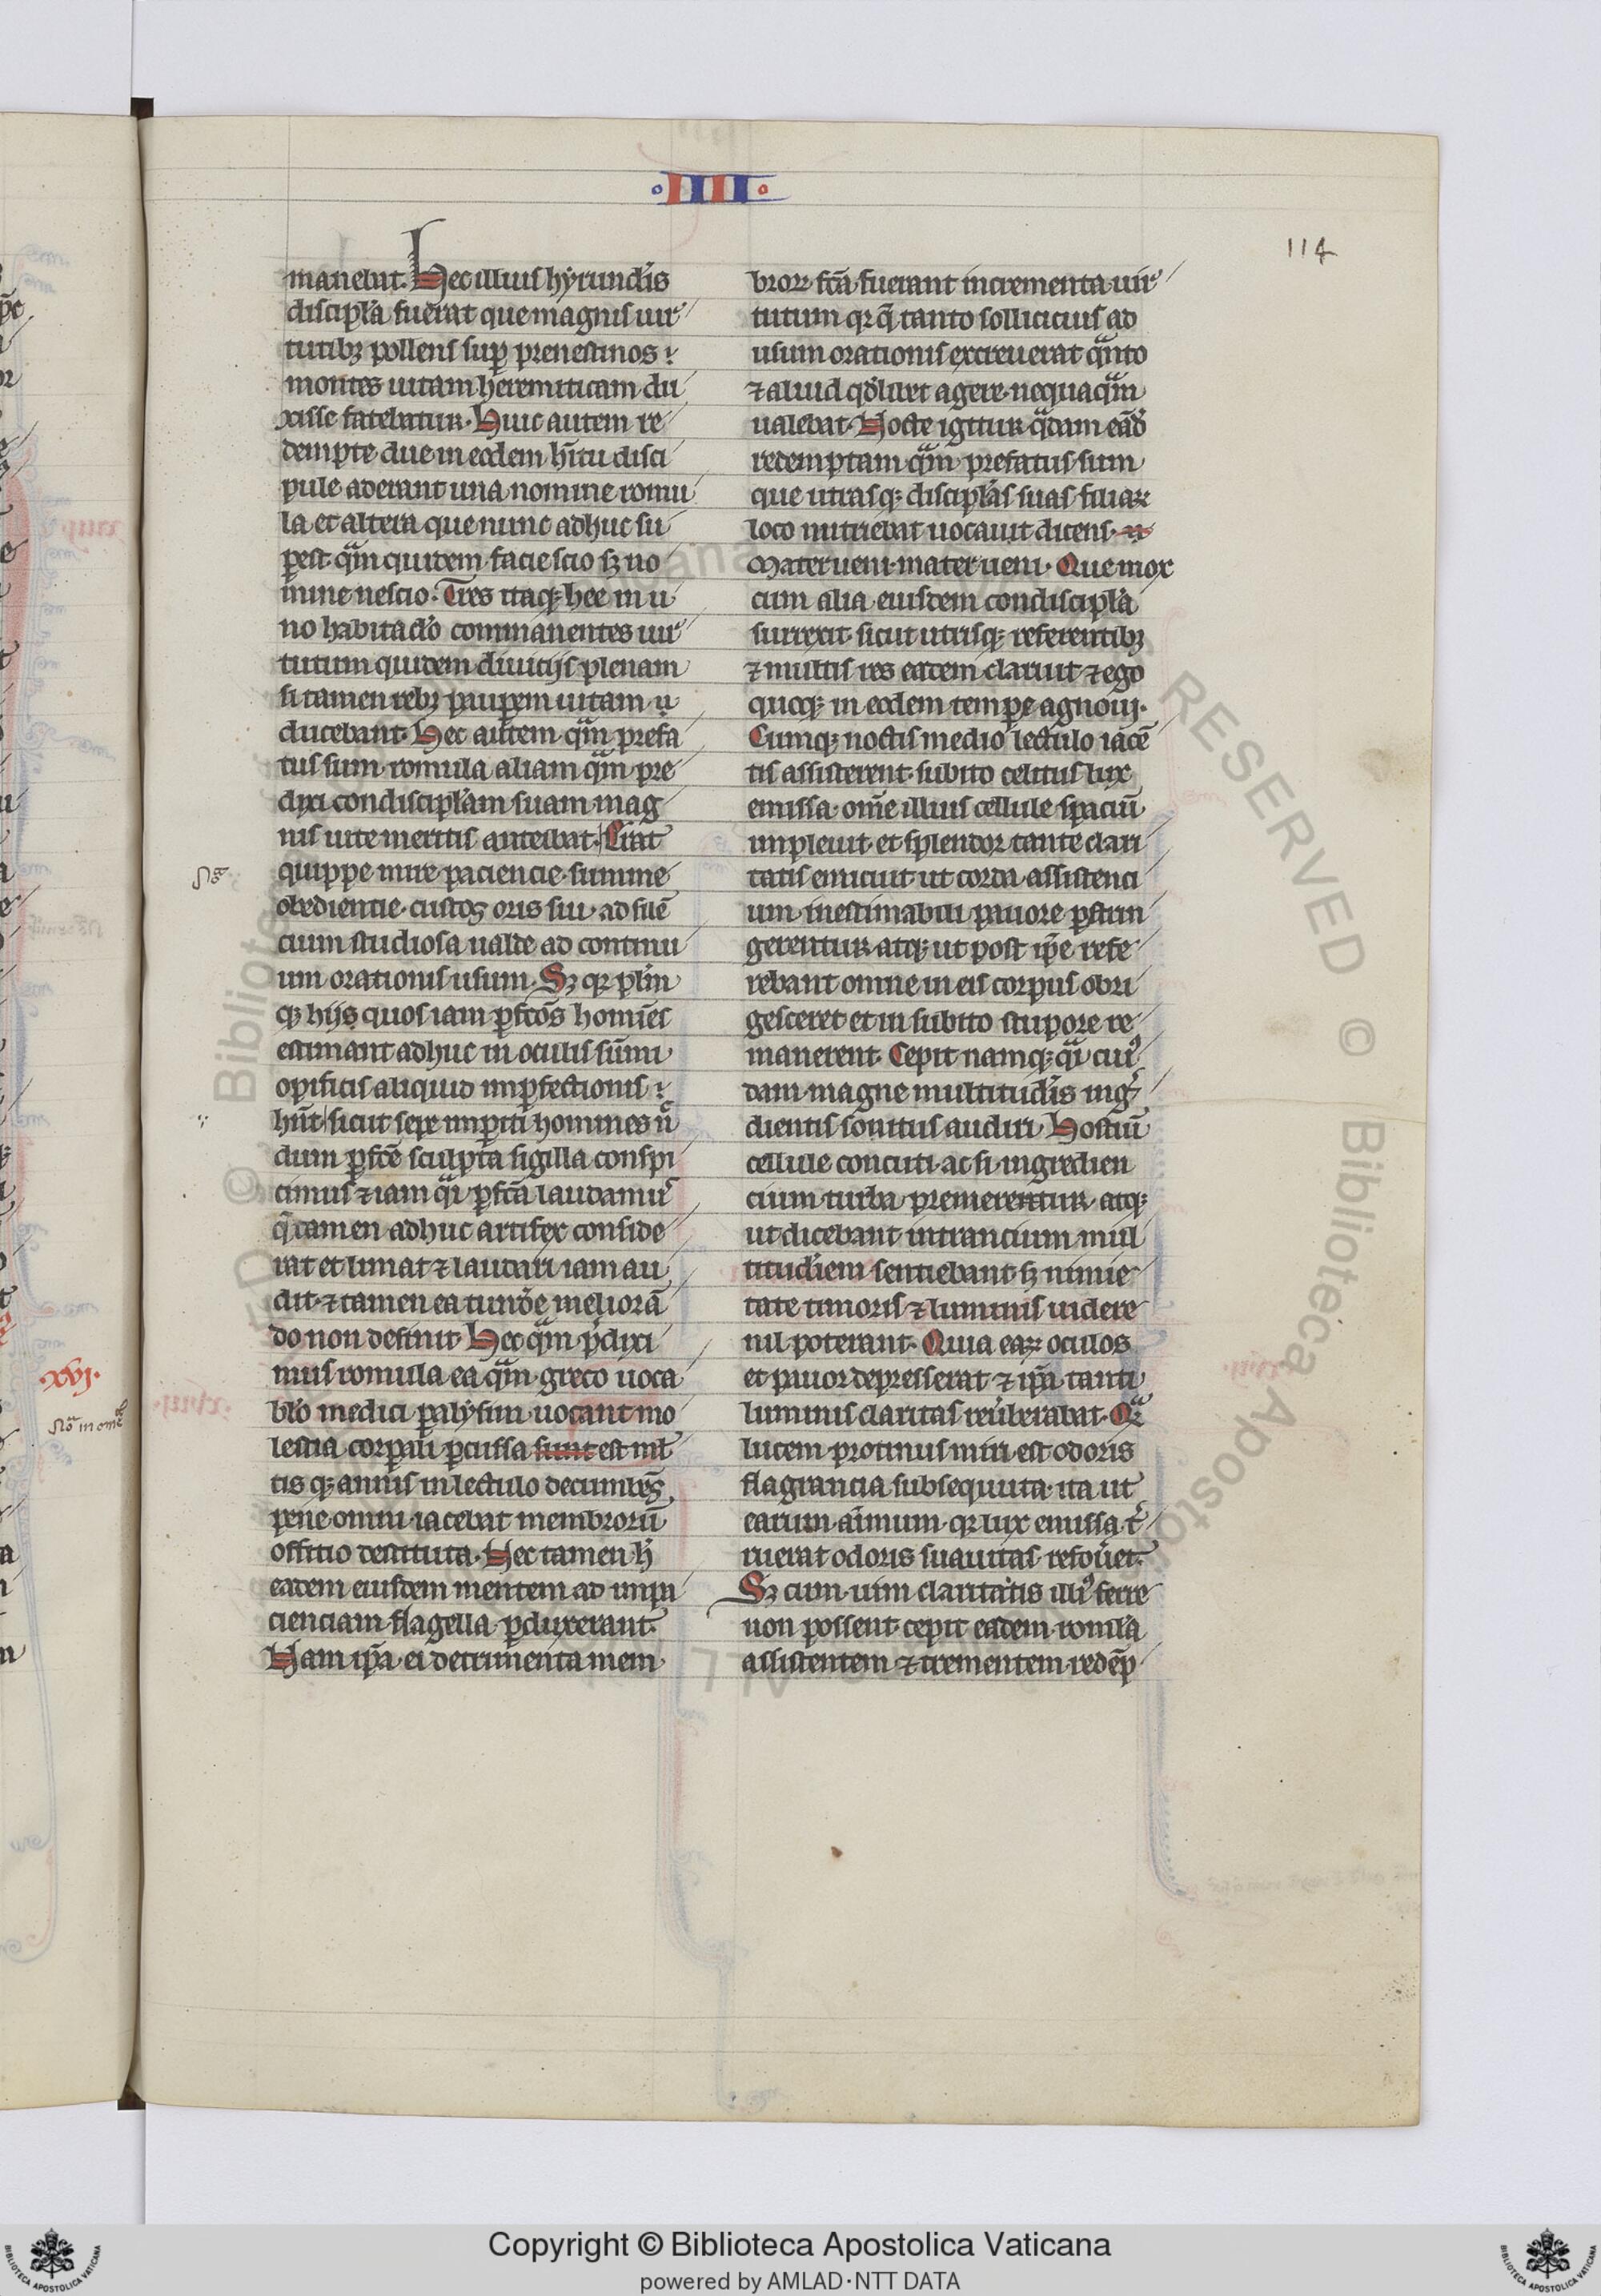 IIII
114
manebat. Hec illius hyrundīs
discipl'a fuerat que magnis uir
tutibꝫ pollens suꝑ prenestinos
montes uitam heremiticam du
xisse fatebatur. Huic autem re
dempte due in eodem hītu disci
pule aderant una nomine romu
la et altera que nunc adhuc su
ꝑest qᵃm quidem facie scio sꝫ no
mine nescio. Tres itaqꝫ hee in u
no habitac̄lo commanentes uir
tutum quidem diuicijs plenam
si tamen rebꝫ pauꝑem uitam u
ducebant. Hec autem qᵃm prefa
tus sum romula aliam qᵃm pre
dixi condiscipl'am suam mag
nis uite meritis anteibat. Erat
quippe mire paciencie summe
obedientie custos oris sui ad silē
cium studiosa ualde ad continu
um orationis usum. Sꝫ qꝛ pl'im
qꝫ hijs quos iam ꝑfc̄os homīes
estimant adhuc in oculis sūmi
opificis aliquid imꝑfectionis
hn̄t sicut sepe imꝑiti homines n̄
dum ꝑfc̄e sculpta sigilla conspi
cimus ⁊ iam qᵃi ꝑfc̄a laudamus
q̄ tamen adhuc artifex conside
rat et limat ⁊ laudari iam au
dit ⁊ tamen ea tundēe meliorā
do non desinit. Hec qᵃm p̄dixi
mus romula ea qᵃm greco uoca
bl'o medici ꝑalysim uocant mo
lestia corꝑali ꝑcussa sunt est ml'
tis qꝫ annis in lectulo decumbēs
pene omni iacebat membrorū
offitio destituta. Hec tamen h̄
eadem eiusdem mentem ad inpa
cienciam flagella ꝑduxerant.
Nam ip̄a ei detrimenta mem
broꝝ fc̄a fuerant incrementa uir
tutum qꝛ q̄ tanto sollicicius ad
usum orationis excreuerat qᵃnto
⁊ aliud qd'libet agere nequaqᵃm
ualebat. Nocte igitur qᵃdam eād'
redemptam qᵃm prefatus sum
que utrasqꝫ discipl'as suas filiaꝝ
loco nutriebat uocauit dicens. u
Mater ueni mater ueni. Que mox
cum alia eiusdem condiscipl'a
surrexit sicut utrisqꝫ referentibꝫ
⁊ multis res eadem claruit ⁊ ego
quoqꝫ in eodem temꝑe agnoui.
Cumqꝫ noctis medio lectulo iacē
tis assisterent subito celitus lux
emissa om̄e illius cellule spaciū
impleuit et splendor tante clari
tatis emicuit ut corda assistenci
um inestimabili pauore ꝑstrin
gerentur atqꝫ ut post ip̄e refe
rebant omne in eis corpus obri
gesceret et in subito stupore re
manerent. Cepit namqꝫ qᵃi cuiꝰ
dam magne multitud'is ingr̄
dientis sonitus audiri. Hostiū
cellule concuti ac si ingredien
cium turba premerentur atqꝫ
ut dicebant intrancium mul
titud'iem sentiebant sꝫ nimie
tate timoris ⁊ luminis uidere
nil poterant. Quia eaꝝ oculos
et pauor depresserat ⁊ ip̄a tanti
luminis claritas reūberabat. Qᵃ
lucem protinus miri est odoris
flagrancia subsequuta ita ut
earum aīmum qꝛ lux emissa t̄
ruerat odoris suauitas refoūet.
Sꝫ cum uim claritatis illiꝰ ferre
non possent cepit eadem romula
assistentem ⁊ trementem redēp
.xvj.